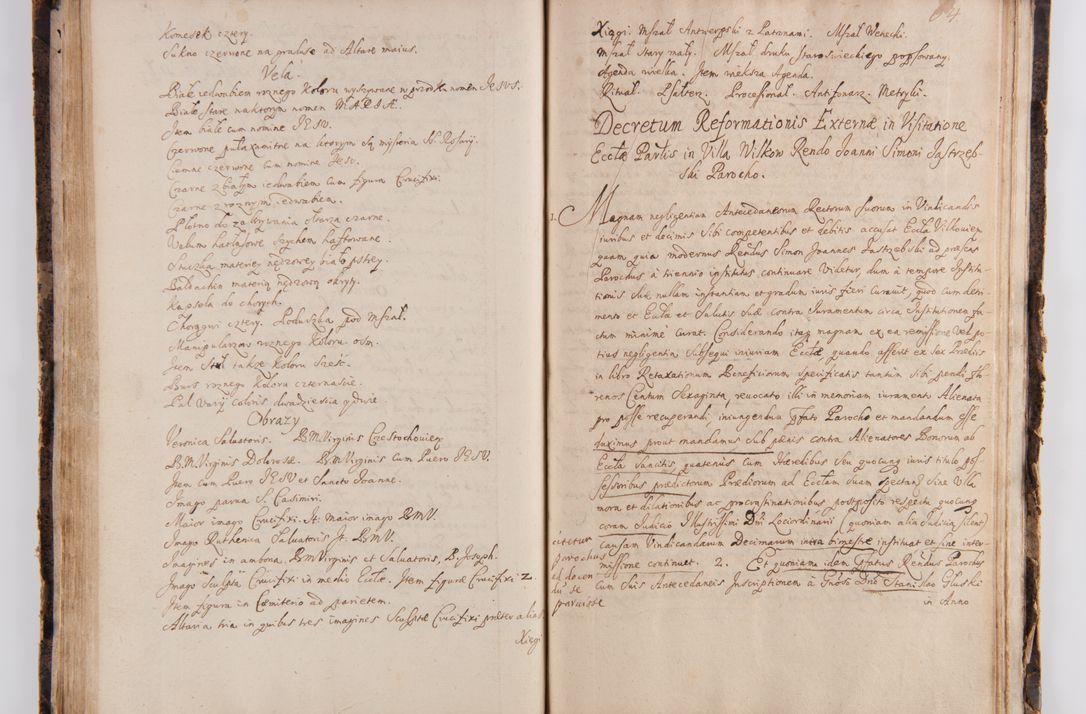 Komeżek cztery.
Sukno czerwone na graduse ad Altare maius.
Vela.
Białe iedwabiem roznego koloru wyszywane w posrodku nomen JESVS.
Białe stare na ktorym nomen MARIÆ.
Item białe cum nomine JESV.
Czerwone na ktorym są mysteria SS. Rosarij.
Ciemne czerwone cum nomine Jesv.
Czarne z białym iedwabiem cum figura Crucifixi.
Czarne z roznym iedwabiem.
Płotno do zakrywania ołtarza czarne.
Velum szychem haftowane.
Sztuczka materyey nędzowey biało pstrey.
Baldachin materią nędzową okryty.
Kapsola do chorych.
Chorągwi cztery. Poduszka pod Mszał.
Manipularzow roznego koloru osm.
Item Stuł także koloru sześć.
Burs roznego koloru czternaście.
Pal varij coloris dwadzieścia y dwie.
Obrazy
Veronica Saluatoris. B.M. Virginis Częstochovien
B.M. Virginis Dolorosæ. B.M. Virginis cum Puero JESV.
Item cum Puero JESV et Sancto Joanne.
Imago parva S. Casimiri.
Maior imago Crucifixi. It. Maior imago B.M.V.
Imago Ruthenica Saluatoris It. B.M.V.
Imagines in ambona, B.M. Virginis et Saluatoris, B. Joseph.
Imago Sculpta Crucifixi in medio Eccłæ. Item figuræ Crucifixi 2.
Item figura in Cœmiterio ad parietem.
Altaria tria in quibus tres imagines Sculptæ Crucifixi præter alias
Xięgi
64
Xięgi. Mszał Antwerpski z Patronami. Mszał Wenecki.
Mszał Stary mały. Mszał druku Staroświeckiego popsowany.
Agenda wielka. Item większa Agenda.
Rituał. Psałterz. Processionał. Antifonarz. Metryki.
Decretum Reformationis Externæ in Visitatione
Eccłæ Parlis in Villa Wilkow Rendo Joanni Simoni Jastrzęb-
ski Parocho.
1. Magnam negligentiam Antecedaneorum Rectorum suorum in Vindicandis
iuribus et decimis Sibi competentibus et debitis accusat Eccła Vilkovien
quam quia modernus Rendus Simon Joannes Jastrzębski ad præsens
Parochus à triennio institutus continuare Videtur, dum à tempore Institu-
tionis suæ nullam instantiam et gradum iuris fieri curavit, quod cum detri-
mento et Eccłæ et Salutis suæ contra Juramentum circa Institutionem fa-
ctum minimè curat. Considerando itaq magnam ex ea remissione vel po-
tius negligentia subsequi iniuriam Eccłæ, quando asserit ex sex Prædiis
in libro Retaxationum Beneficiorum specificatis tantùm sibi pendi flo-
renos Centum Sexaginta, revocato illi in memoriam iuramento Alienata
pro posse recuperandi, iniungendum Pffato Parocho et mandandum esse
duximus prout mandamus sub pœnis contra Alienatores Bonorum ab
Eccła Sancitis quatenus cum Hæredibus seu quocunq iuris titulo pos-
sessoribus prædictorum Prædiorum ad Eccłam suam spectanq sine Ulla
mora et dilationibus ac procrastinationibus postposito respectu quocunq
coram Judicio Illustrissimi Dni Loci ordinarii (quoniam alia Judicia silent)
causam Vindicandarum Decimarum intra bimestre instituat et sine inter-
missione continuet. 2. Et quoniam idem Pffatus Rendus Parochus
cum suis Antecedaneis Inscriptionem à Gnoso Dno Stanislao Głuski
in Anno
citetur
parochus
ad docen-
dū se
paruisse